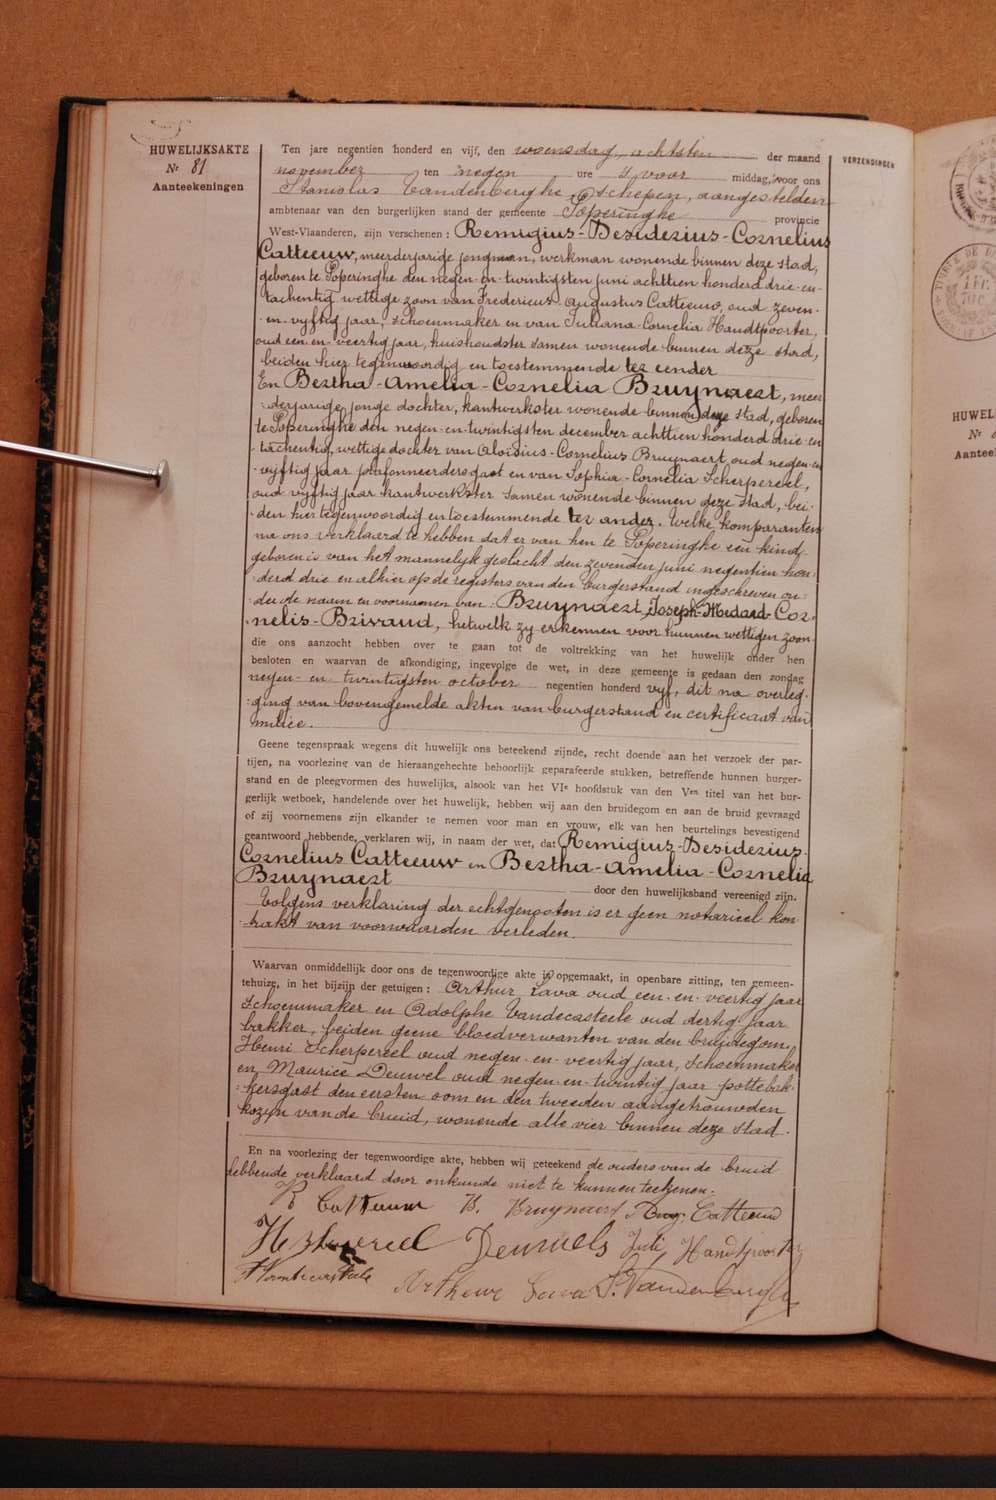 HUWELIJKSAKTE
Nr 81
Aanteekeningen
VERZENDINGEN
Ten jare negentien honderd en vijf, den woensdag, achtsten der maand
november ten negen ure 's voor middag, voor ons
Stanislas Vandenberghe, schepen, aangestelden
ambtenaar van den burgerlijken stand der gemeente Poperinghe provincie
West-Vlaanderen, zijn verschenen : Remigius-Desiderius-Cornelius
Catteeuw, meerderjarige jongman, werkman wonende binnen deze stad,
geboren te Poperinghe den negen-en-twintigsten juni achttien honderd drie-en-
tachentig wettige zoon van Fredericus-Augustus Catteeuw, oud zeven-
en-vyftig jaar, schoenmaker en van Juliana-Cornelia Handtpoorter,
oud een-en-veertig jaar, huishoudster samen wonende binnen deze stad,
beiden hier tegenwoordig en toestemmende ter eender
En Bertha-Amelia-Cornelia Bruynaert, meer
derjarige jonge dochter, kantwerkster wonende binnen deze stad, geboren
te Poperinghe den negen-en-twintigsten december achttien honderd drie-en
tachentig, wettige dochter van Aloïsius-Cornelius Bruynaert, oud negen-en
vyftig jaar plafonneerdersgast en van Sophia-Cornelia Scherpereel,
oud vyftig jaar kantwerkster samen wonende binnen deze stad, bei-
den hier tegenwoordig en toestemmende ter ander. Welke komparanten
na ons verklaard te hebben dat er van hen te Poperinghe een kind
geboren is van het mannelyk geslacht den zevenden juni negentien hon-
derd drie en alhier op de registers van den burgerstand ingeschreven on-
der de naam en voornamen van : Bruynaert Joseph-Medard-Cor-
nelis-Brivaud, hetwelk zy erkennen voor hunnen wettigen zoon.
die ons aanzocht hebben over te gaan tot de voltrekking van het huwelijk onder hen
besloten en waarvan de afkondiging, ingevolge de wet, in deze gemeente is gedaan den zondag
negen-en-twintigsten october negentien honderd vyf, dit na overleg-
ging van bovengemelde akten van burgerstand en certificaat van
milicie.
Geene tegenspraak wegens dit huwelijk ons beteekend zijnde, recht doende aan het verzoek der par-
tijen, na voorlezing van de hieraangehechte behoorlijk geparafeerde stukken, betreffende hunnen burger-
stand en de pleegvormen des huwelijks, alsook van het VIe hoofdstuk van den Ven titel van het bur-
gerlijk wetboek, handelende over het huwelijk, hebben wij aan den bruidegom en aan de bruid gevraagd
of zij voornemens zijn elkander te nemen voor man en vrouw, elk van hen beurtelings bevestigend
geantwoord hebbende, verklaren wij, in naam der wet, dat Remigius-Desiderius-
Cornelius Catteeuw en Bertha-Amelia-Cornelia
Bruynaert door den huwelijksband vereenigd zijn.
Volgens verklaring der echtgenooten is er geen notarieel kon
trakt van voorwaarden verleden.
Waarvan onmiddellijk door ons de tegenwoordige akte is opgemaakt, in openbare zitting, ten gemeen-
tehuize, in het bijzijn der getuigen : Arthur Lava oud een-en-veertig jaar
Schoenmaker en Adolphe Vandecasteele oud dertig jaar
bakker, beiden geene bloedverwanten van den bruidegom,
Henri Scherpereel oud negen-en-veertig jaar, Schoenmaker
en Maurice Deuwel oud negen-en-twintig jaar pottebak-
kersgast den eersten oom en den tweeden aangetrouwden
kozyn van de bruid, wonende alle vier binnen deze stad.
En na voorlezing der tegenwoordige akte, hebben wij geteekend de ouders van de bruid
hebbende verklaard door onkunde niet te kunnen teekenen.
R Catteeuw B. Bruynaert Aug. Catteeuw
H Scherpereel Juli Handtpoorter
Arthur Lava S. Vandenberghe
HUWEL
Nr
Aanteek